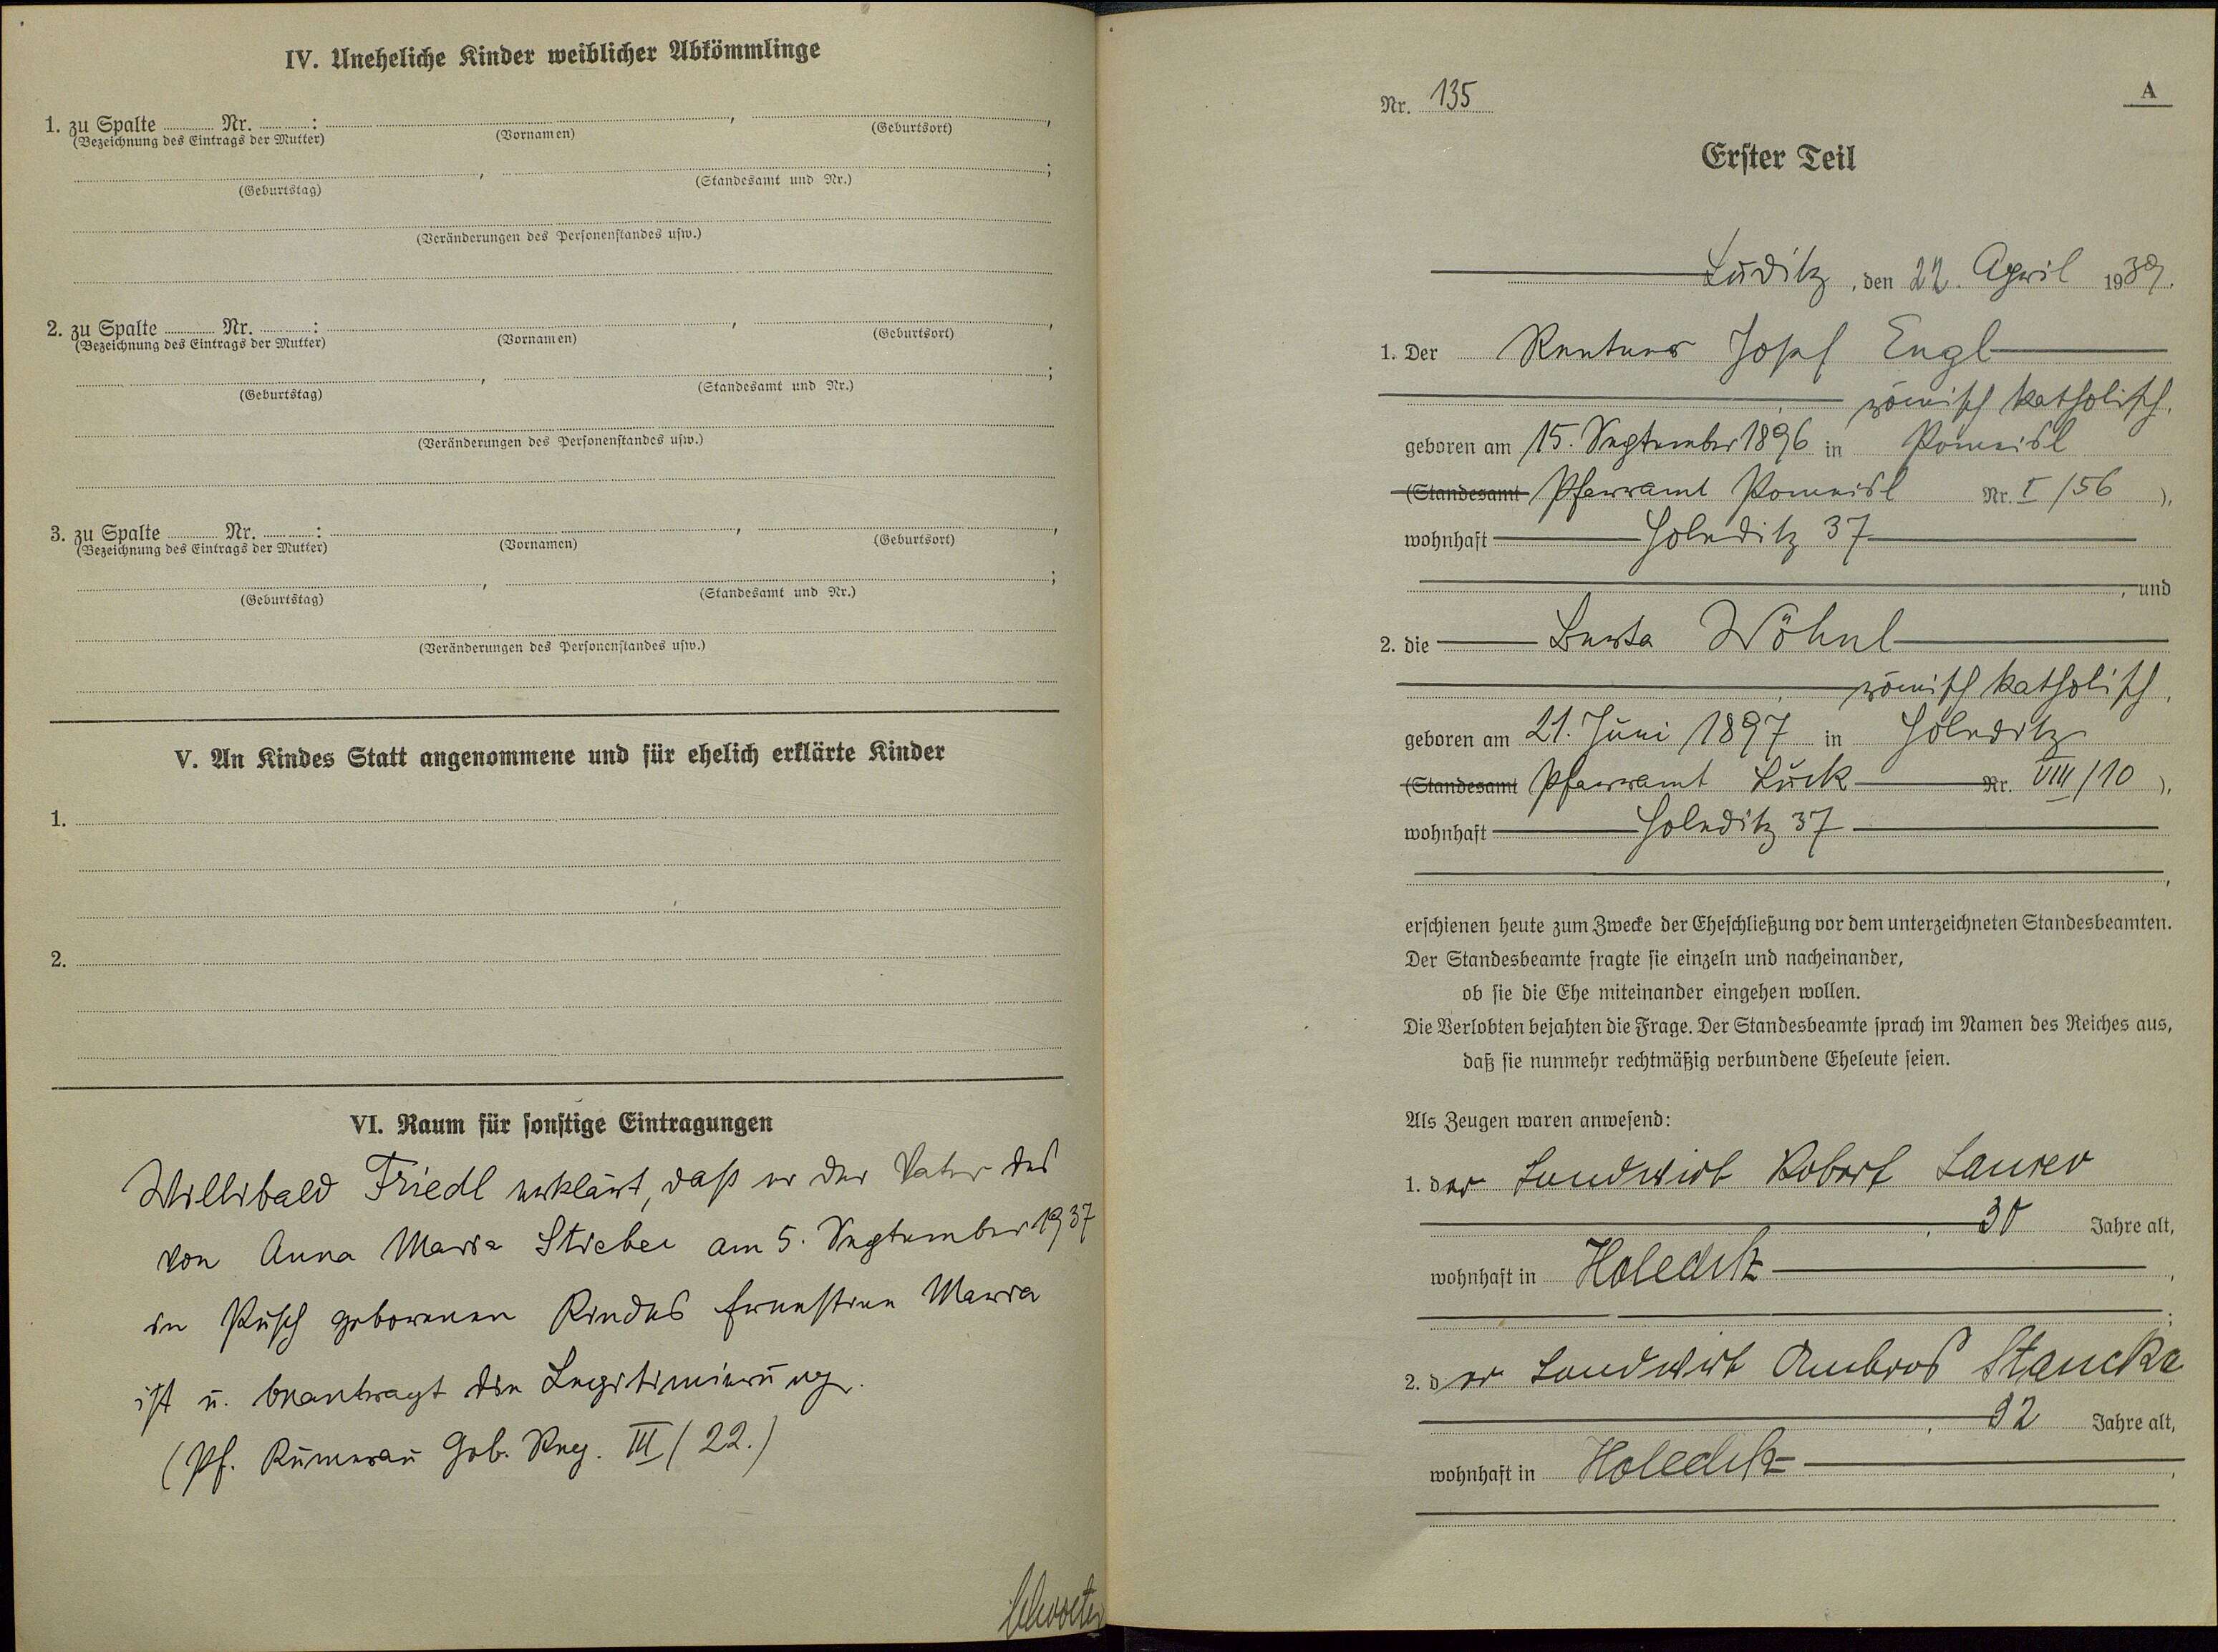 IV. Uneheliche Kinder weiblicher Abkömmlinge
1. zu Spalte Nr. : , ,
(Bezeichnung des Eintrags der Mutter) (Vornamen) (Geburtsort)
, ;
(Geburtstag) (Standesamt und Nr.)
(Veränderungen des Personenstandes usw.)
2. zu Spalte Nr. : , ,
(Bezeichnung des Eintrags der Mutter) (Vornamen) (Geburtsort)
, ;
(Geburtstag) (Standesamt und Nr.)
(Veränderungen des Personenstandes usw.)
3. zu Spalte Nr. : , ,
(Bezeichnung des Eintrags der Mutter) (Vornamen) (Geburtsort)
, ;
(Geburtstag) (Standesamt und Nr.)
(Veränderungen des Personenstandes usw.)
V. An Kindes Statt angenommene und für ehelich erklärte Kinder
1.
2.
VI. Raum für sonstige Eintragungen
Willibald Friedl erklärt, daß er der Vater des
von Anna Maria Stieber am 5. September 1937
in Pusch geborenen Kindes Ernestine Maria
ist u. beantragt die Legitimierung.
(Pf. Rumerau Geb. Reg. III/22.)
Nr. 135 A
Erster Teil
Luditz, den 22. April 1939.
1. Der Rentner Josef Engl
römisch katholisch,
geboren am 15. September 1896 in Pomeisl
(Standesamt Pfarramt Pomeisl Nr. I/56 ),
wohnhaft Holeditz 37
, und
2. die Berta Wöhnl
, römisch katholisch,
geboren am 21. Juni 1897 in Holeditz
(Standesamt Pfarramt Luck Nr. VIII/10 ),
wohnhaft Holeditz 37
,
erschienen heute zum Zwecke der Eheschließung vor dem unterzeichneten Standesbeamten.
Der Standesbeamte fragte sie einzeln und nacheinander,
ob sie die Ehe miteinander eingehen wollen.
Die Verlobten bejahten die Frage. Der Standesbeamte sprach im Namen des Reiches aus,
daß sie nunmehr rechtmäßig verbundene Eheleute seien.
Als Zeugen waren anwesend:
1. der Landwirt Robert Laurer
, Jahre alt,
wohnhaft in Holeditz ,
;
2. der Landwirt Ambros Stancka
, 32 Jahre alt,
wohnhaft in Holeditz ,
.